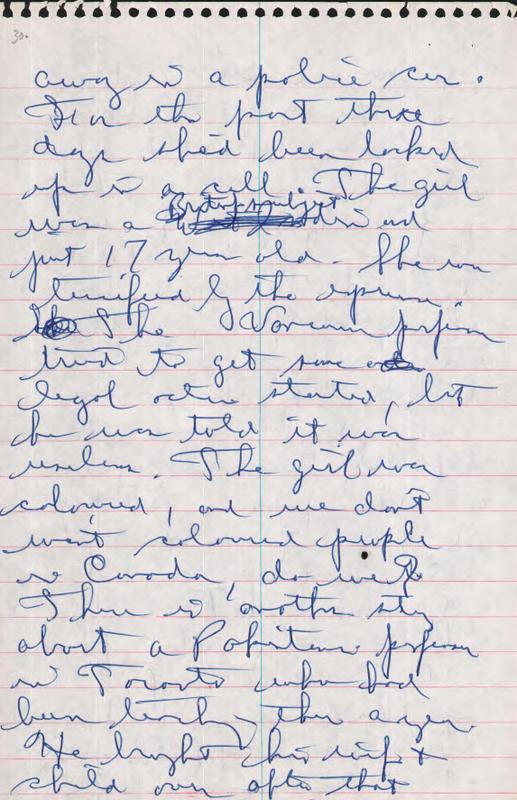 30.
away in a police car.
For the past three
days she'd been locked
up in a cell. The girl
British subject
was a and
just 17 years old. She was
terrified by the experience.
The Vancouver professor
tried to get some
legal action started, but
he was told it was
useless. The girl was
coloured, and we don't
want coloured people
in Canada, do we?
There is another story
about a Pakistani professor
in Toronto who had
been teaching there a year.
He brought his wife &
child over after that